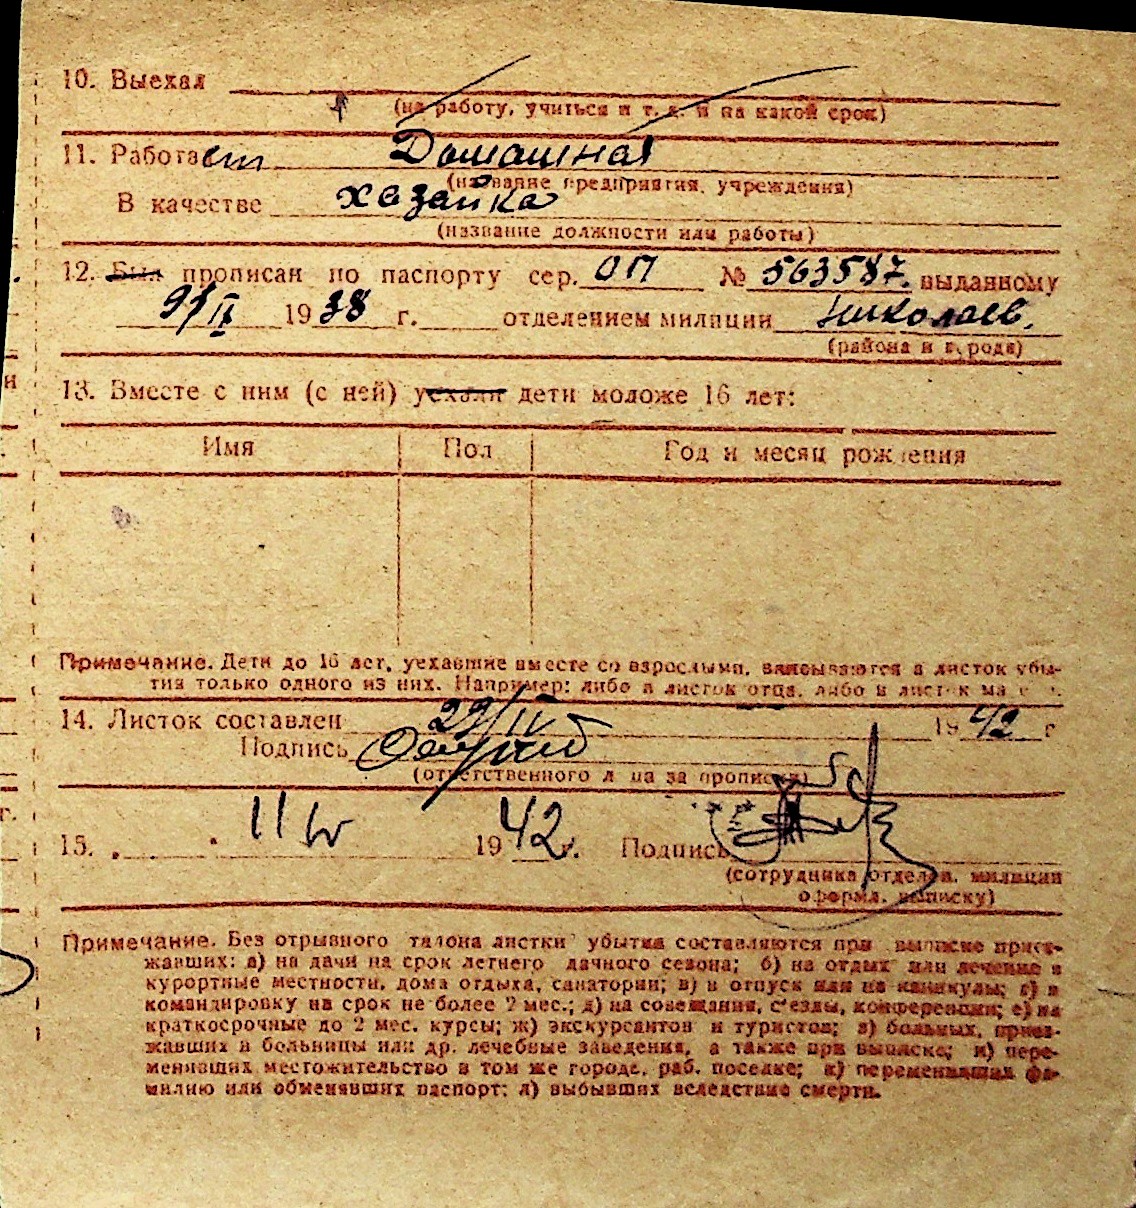 10. Выехал
(на работу, учиться и т. д. и на какой срок)
11. Работает Домашная
(название предприятия, учреждения)
В качестве хозайка
(название должности или работы)
12. Был прописан по паспорту сер. ОП № 563587. выданному
1938 г. отделением милиции Николаев.
(района и города)
13. Вместе с ним (с ней) уехали дети моложе 16 лет:
Имя Пол Год и месяц рождения
Примечание. Дети до 16 лет, уехавшие вместе со взрослыми, вписываются в листок убы-
тия только одного из них. Например: либо в листок отца, либо в листок ма
14. Листок составлен 29/IV 1942 г
Подпись
(ответственного лица за прописку)
15. 11/IV 1942 г. Подпись
(сотрудника отделен. милиции
оформл. выписку)
Примечание. Без отрывного талона листки убытия составляются при выписке приез-
жавших: а) на дачи на срок летнего дачного сезона; б) на отдых или лечение в
курортные местности, дома отдыха, санатории; в) в отпуск или на каникулы; г) в
командировку на срок не более 2 мес.; д) на совещания, с'езды, конференции; е) на
краткосрочные до 2 мес. курсы; ж) экскурсантов и туристов; з) больных, приез-
жавших в больницы или др. лечебные заведения, а также при выписке; и) пере-
менивших местожительство в том же городе, раб. поселке; к) переменивших фа-
милию или обменявших паспорт; л) выбывших вследствие смерти.